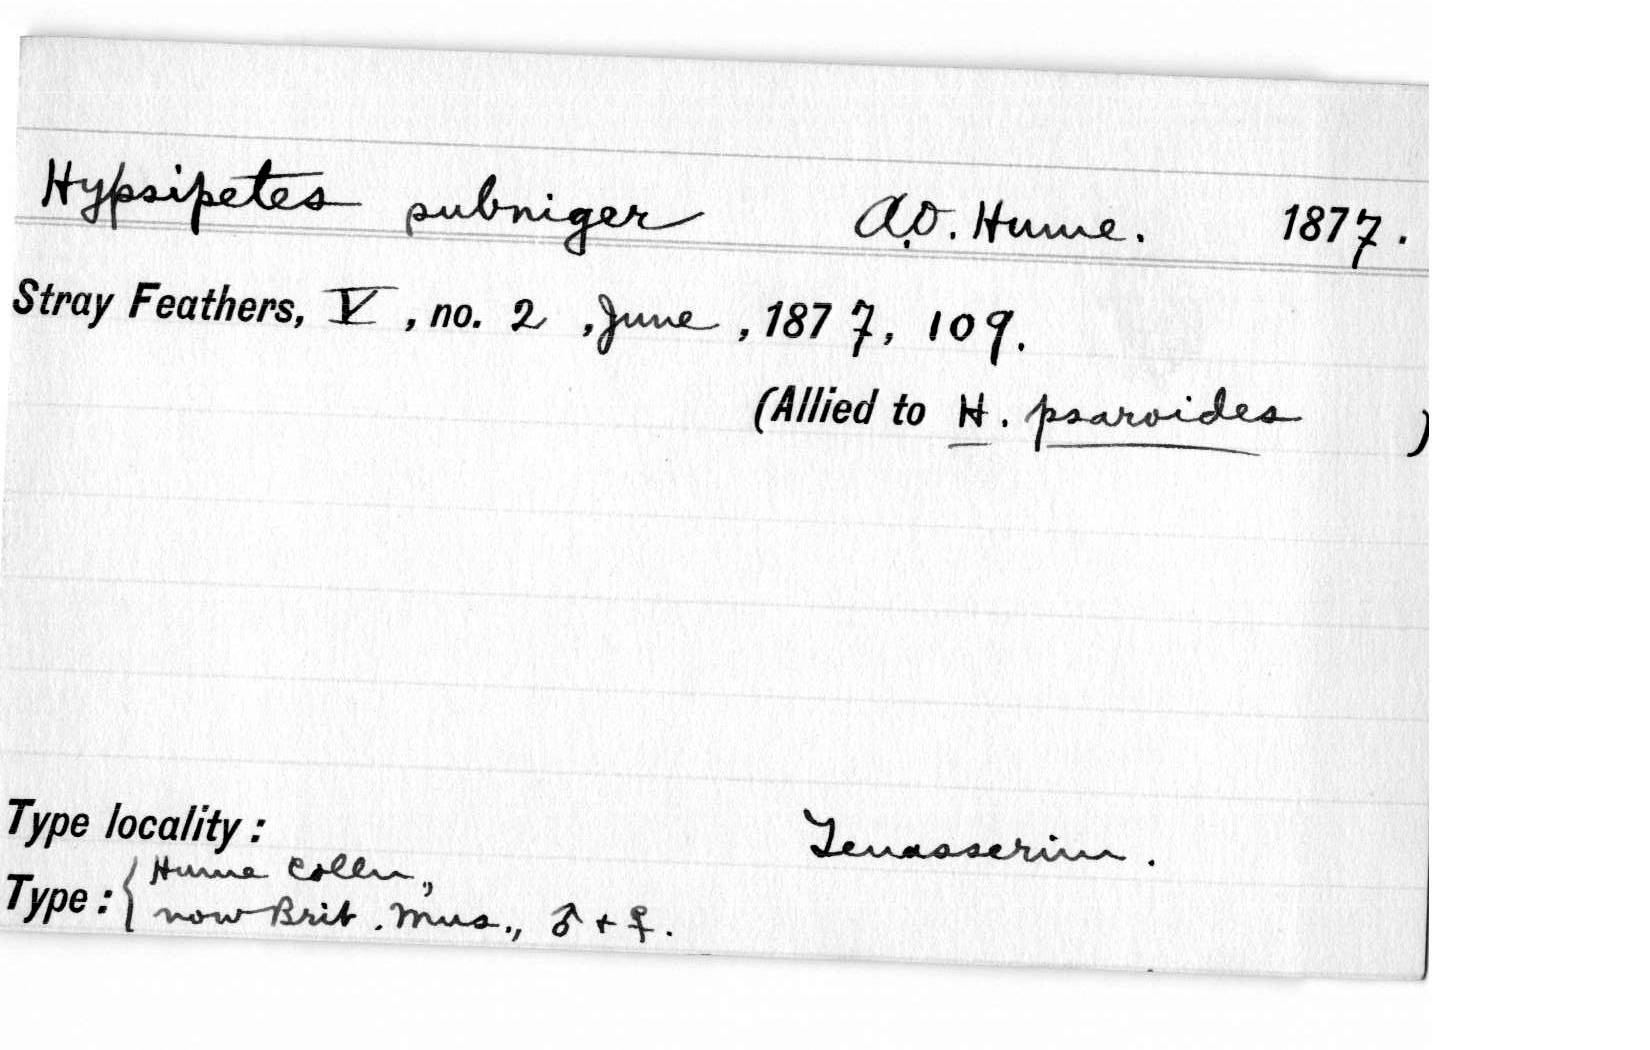 Hypsipetes subniger A.O. Hume. 1877.
Stray Feathers, V, no. 2, June, 1877, 109.
(Allied to H. psaroides )
Type locality: Tenasserim.
Type: { Hume Colln.,
now Brit. Mus., ♂ + ♀.